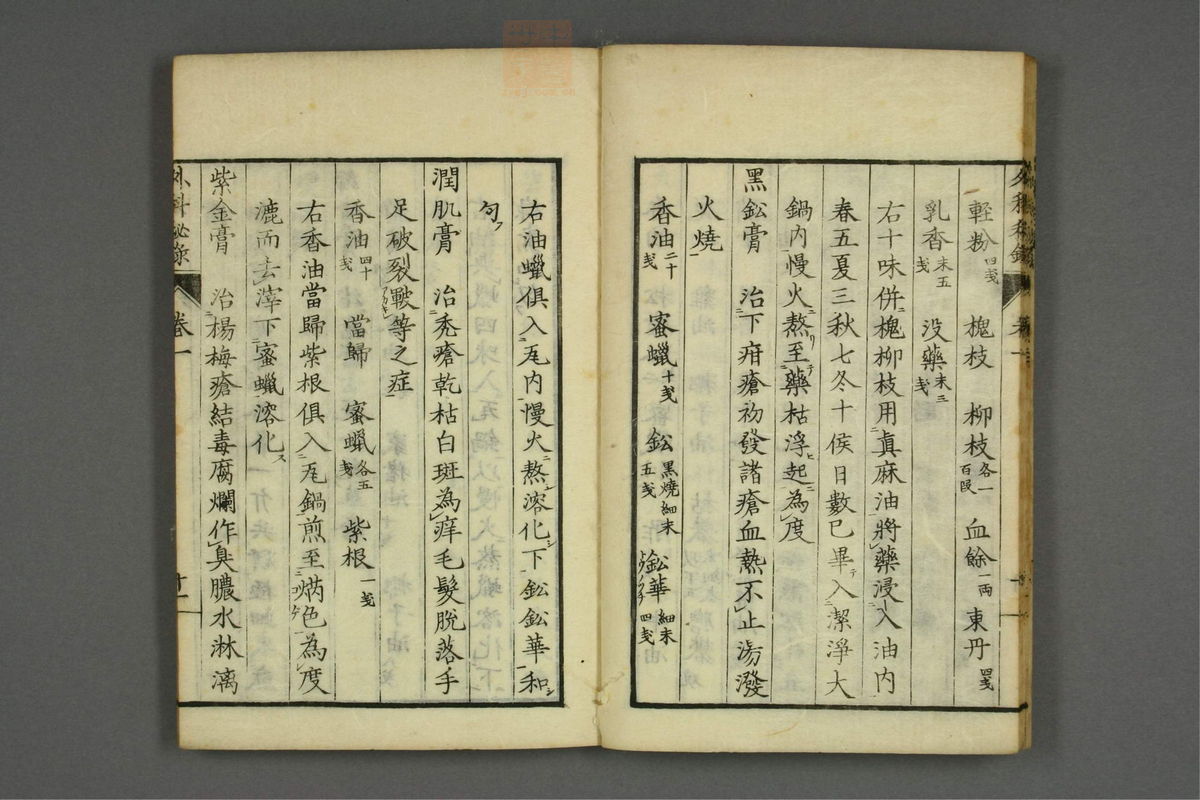 軽粉四戔 槐枝 柳枝各一百段 血餘一両 東丹四戔
乳香末五戔 没藥末三戔
右十味併槐柳枝用眞麻油將藥浸入油内
春五夏三秋七冬十候日數已畢入潔淨大
鍋内慢火熬至藥枯浮起為度
黑鈆膏 治下疳瘡初發諸瘡血熱不止湯潑
火燒
香油二十戔 蜜蠟十戔 鈆黑燒細末五戔 鈆華細末四戔
右油蠟俱入瓦内慢火熬溶化下鈆鈆華和
匀
潤肌膏 治禿瘡乾枯白斑為痒毛髮脫落手
足破裂皸等之症
香油四十戔 當歸 蜜蠟各五戔 紫根一戔
右香油當歸紫根俱入瓦鍋煎至焫色為度
漉而去滓下蜜蠟溶化
紫金膏 治楊梅瘡結毒腐爛作臭膿水淋漓
外科秘录 卷一